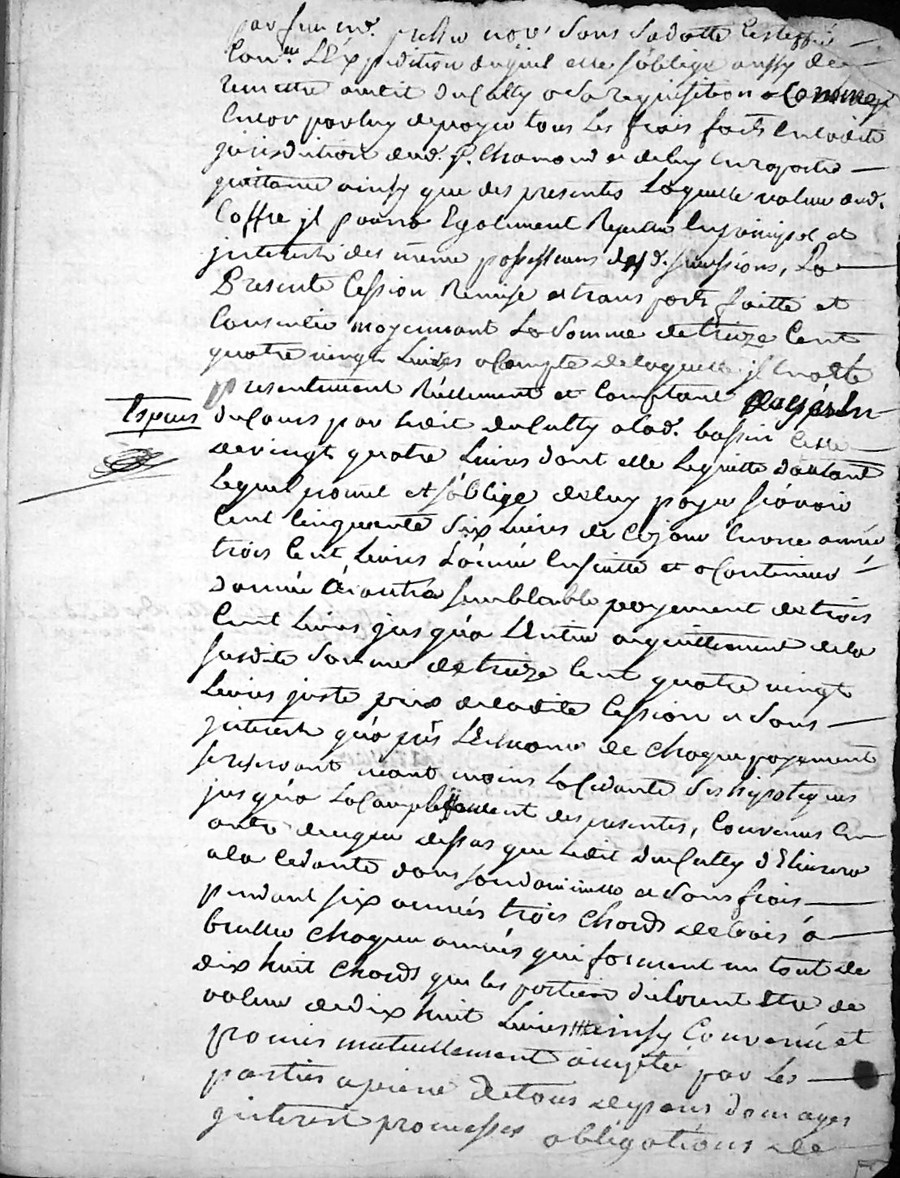 par
Con.re L'Expedition duquel elle s'oblige aussy de
remettre audit duCally a sa requisition a
Encor par luy de payer tous les frais faits En ladite
jurisdiction dud. St. Chamond et de luy En raporter
quittance ainsy que des presentes Laquelle valeur dud.
Coffre jl pourra Egallement En principal et
jnterets des même possesseurs desd. successions, La
Presente Cession Remise et transport faitte et
Consentie moyennant La Somme de treize Cent
quatre vingt Livres a Compte de laquelle jl En a Eté
presentement Réellement et Comptant
Espèces
du Cours par ledit duCally a lad. bassin Celle
de vingt quatre Livres dont elle Le quitte d'autant
Lequel promet et s'oblige de luy payer sçavoir
Cent Cinquante Six Livres de Ce jour En une année
trois Cent Livres L'année Ensuitte et a Continuer
d'année En autre semblable payement de trois
Cent Livres jusqu'a L'Entier acquittement de la
susditte Somme de treize Cent quatre vingt
Livres juste prix de ladite Cession et Sans
jnterets qu'aprés L'Echeance de Chaque payement
se reservant néant moins La Cedante Ses hypoteques
jusqu'a La des presentes, Convenus En
outre que dessus que Ledit duCally
a la Cedante dans son domicille et Sans frais
pendant six années trois Chards de bois á
bruller Chaque années qui forment un tout de
dix huit Chards que les parties disent Etre de
valeur de dix huit Livres ainsy Convenu et
promis mutuellement accepté par Les
parties a peine de tous depens domages
jnterets promesses obligations de